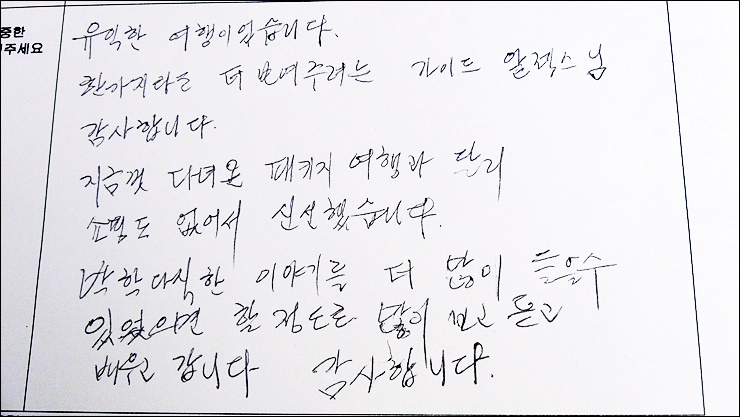 중한
주세요
유익한 여행이었습니다.
한가지라도 더 보여주려는 가이드 알젝스님
감사합니다.
지금껏 다녀온 패키지 여행과 달리
쇼핑도 없어서 신선했습니다.
박학다식한 이야기를 더 많이 들을수
있었으면 할 정도로 많이 보고 듣고
배우고 갑니다 감사합니다.